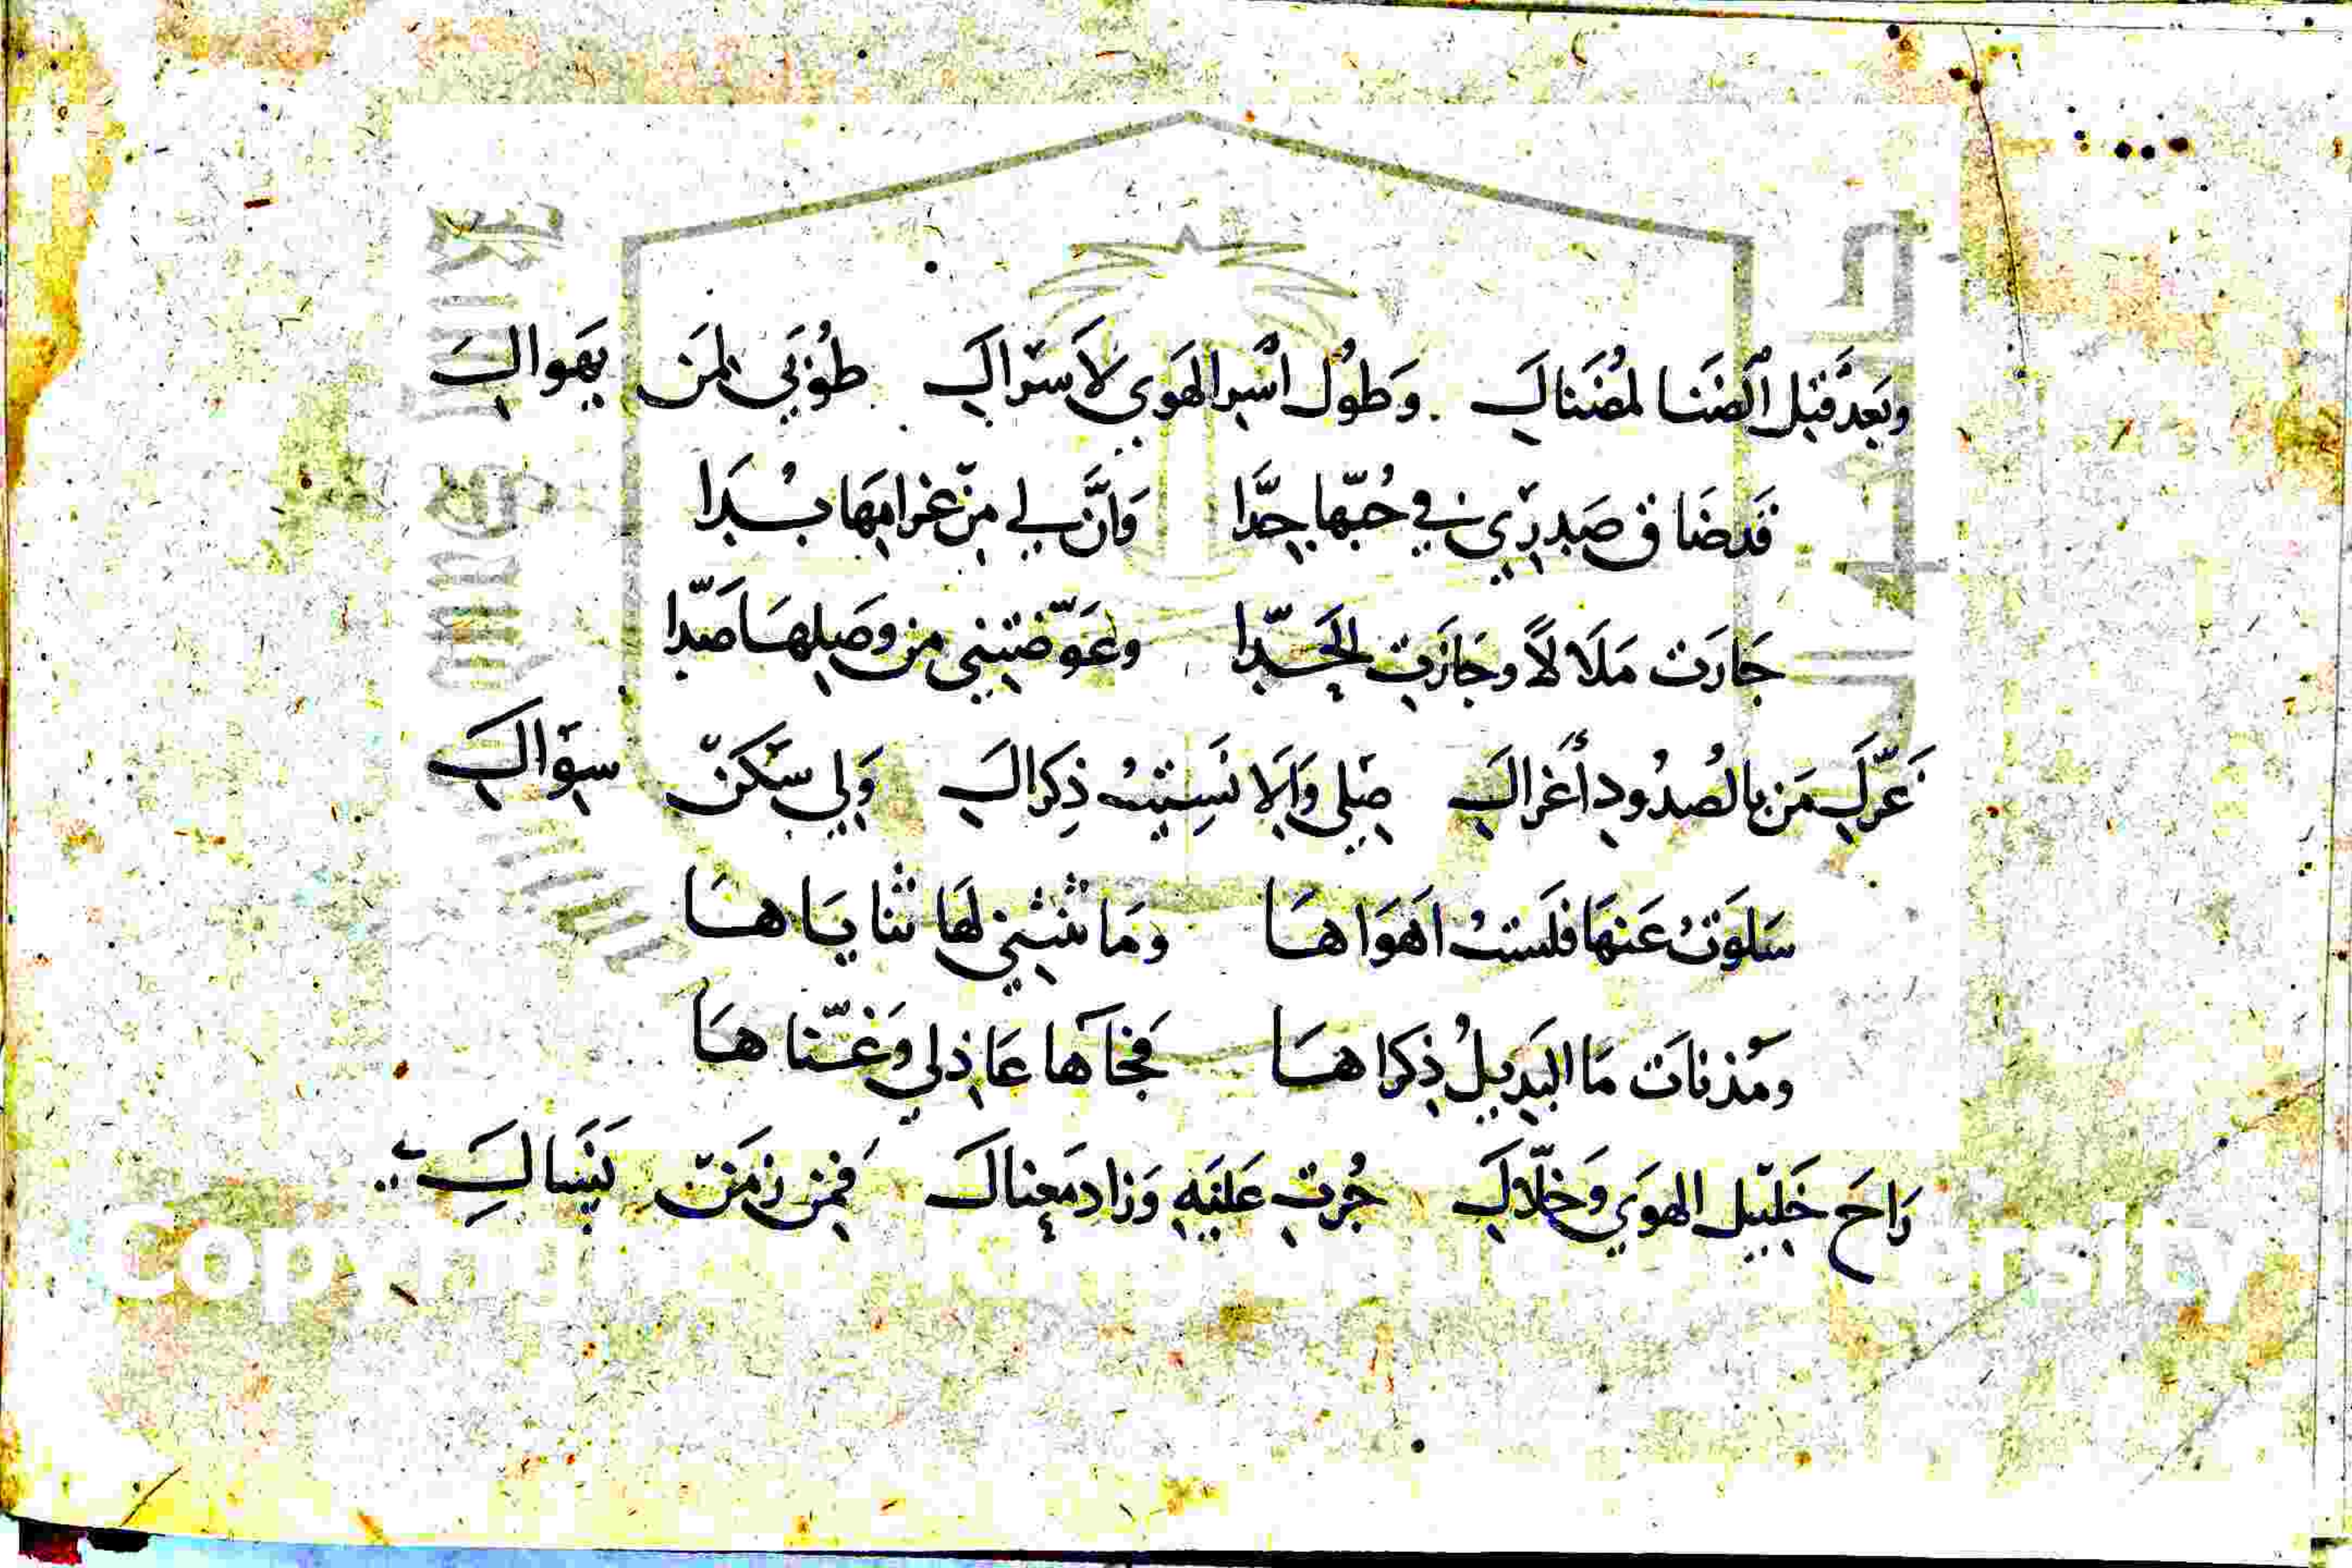 وَبَعْدَ قَبْل الضَنَا لمُضَناكِ وَطوُل اسْر الهَوي لاَسْراكِ طُوْبَي لمَن يَهَواكِ
قَد ضَاق صَدرِي في حُبّها جِدَّا وَانَّ لي مِنْ غرامِهَا بُدَا
جَارَت مَلَالاً وجَازَتِ الحَدّا وعَوّضتِني من وصَلِهَا صَدّا
غَرّكِ مَن بالصُدُودِ أَغراكِ صِلي وَاِلَا نَسِيتُ ذِكراكِ وَلي سَكَنْ سِوَاكِ
سَلَوتُ عَنهَا فلَستُ اَهَوَاهَا ومَا تثنِني لهَا ثنايَاهَا
ومُذ نات مَا البَدِيلُ ذِكراهَا فجَآها عَاذِلي وَغنّاهَا
رَاحَ خَلِيل الهوَي وَخلّاكِ جُرتِ عَليَهِ وَزاد مَعِناكَ فَمِن زمَنْ يَنسَاكِ
Copyright © King Saud University